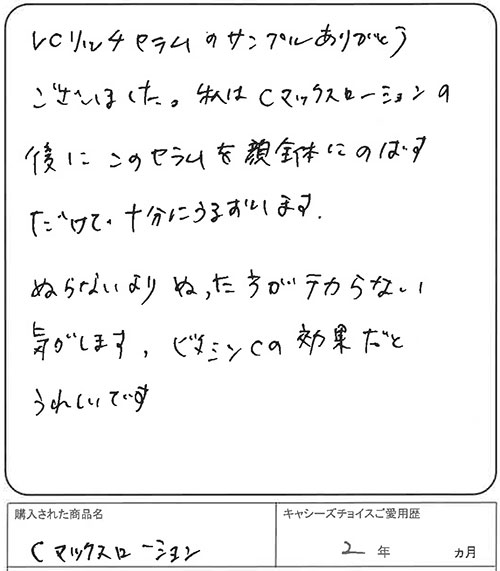 VCリッチセラムのサンプルありがとう
ございました。私はCマックスローションの
後にこのセラムを顔全体にのばす
だけで、十分にうるおいます.
ぬらないよりぬったっ方がテカらない
気がします, ビタミンCの効果だと
うれしいです
購入された商品名
キャシーズチョイスご愛用歴
Cマックスローション
2年 ヵ月